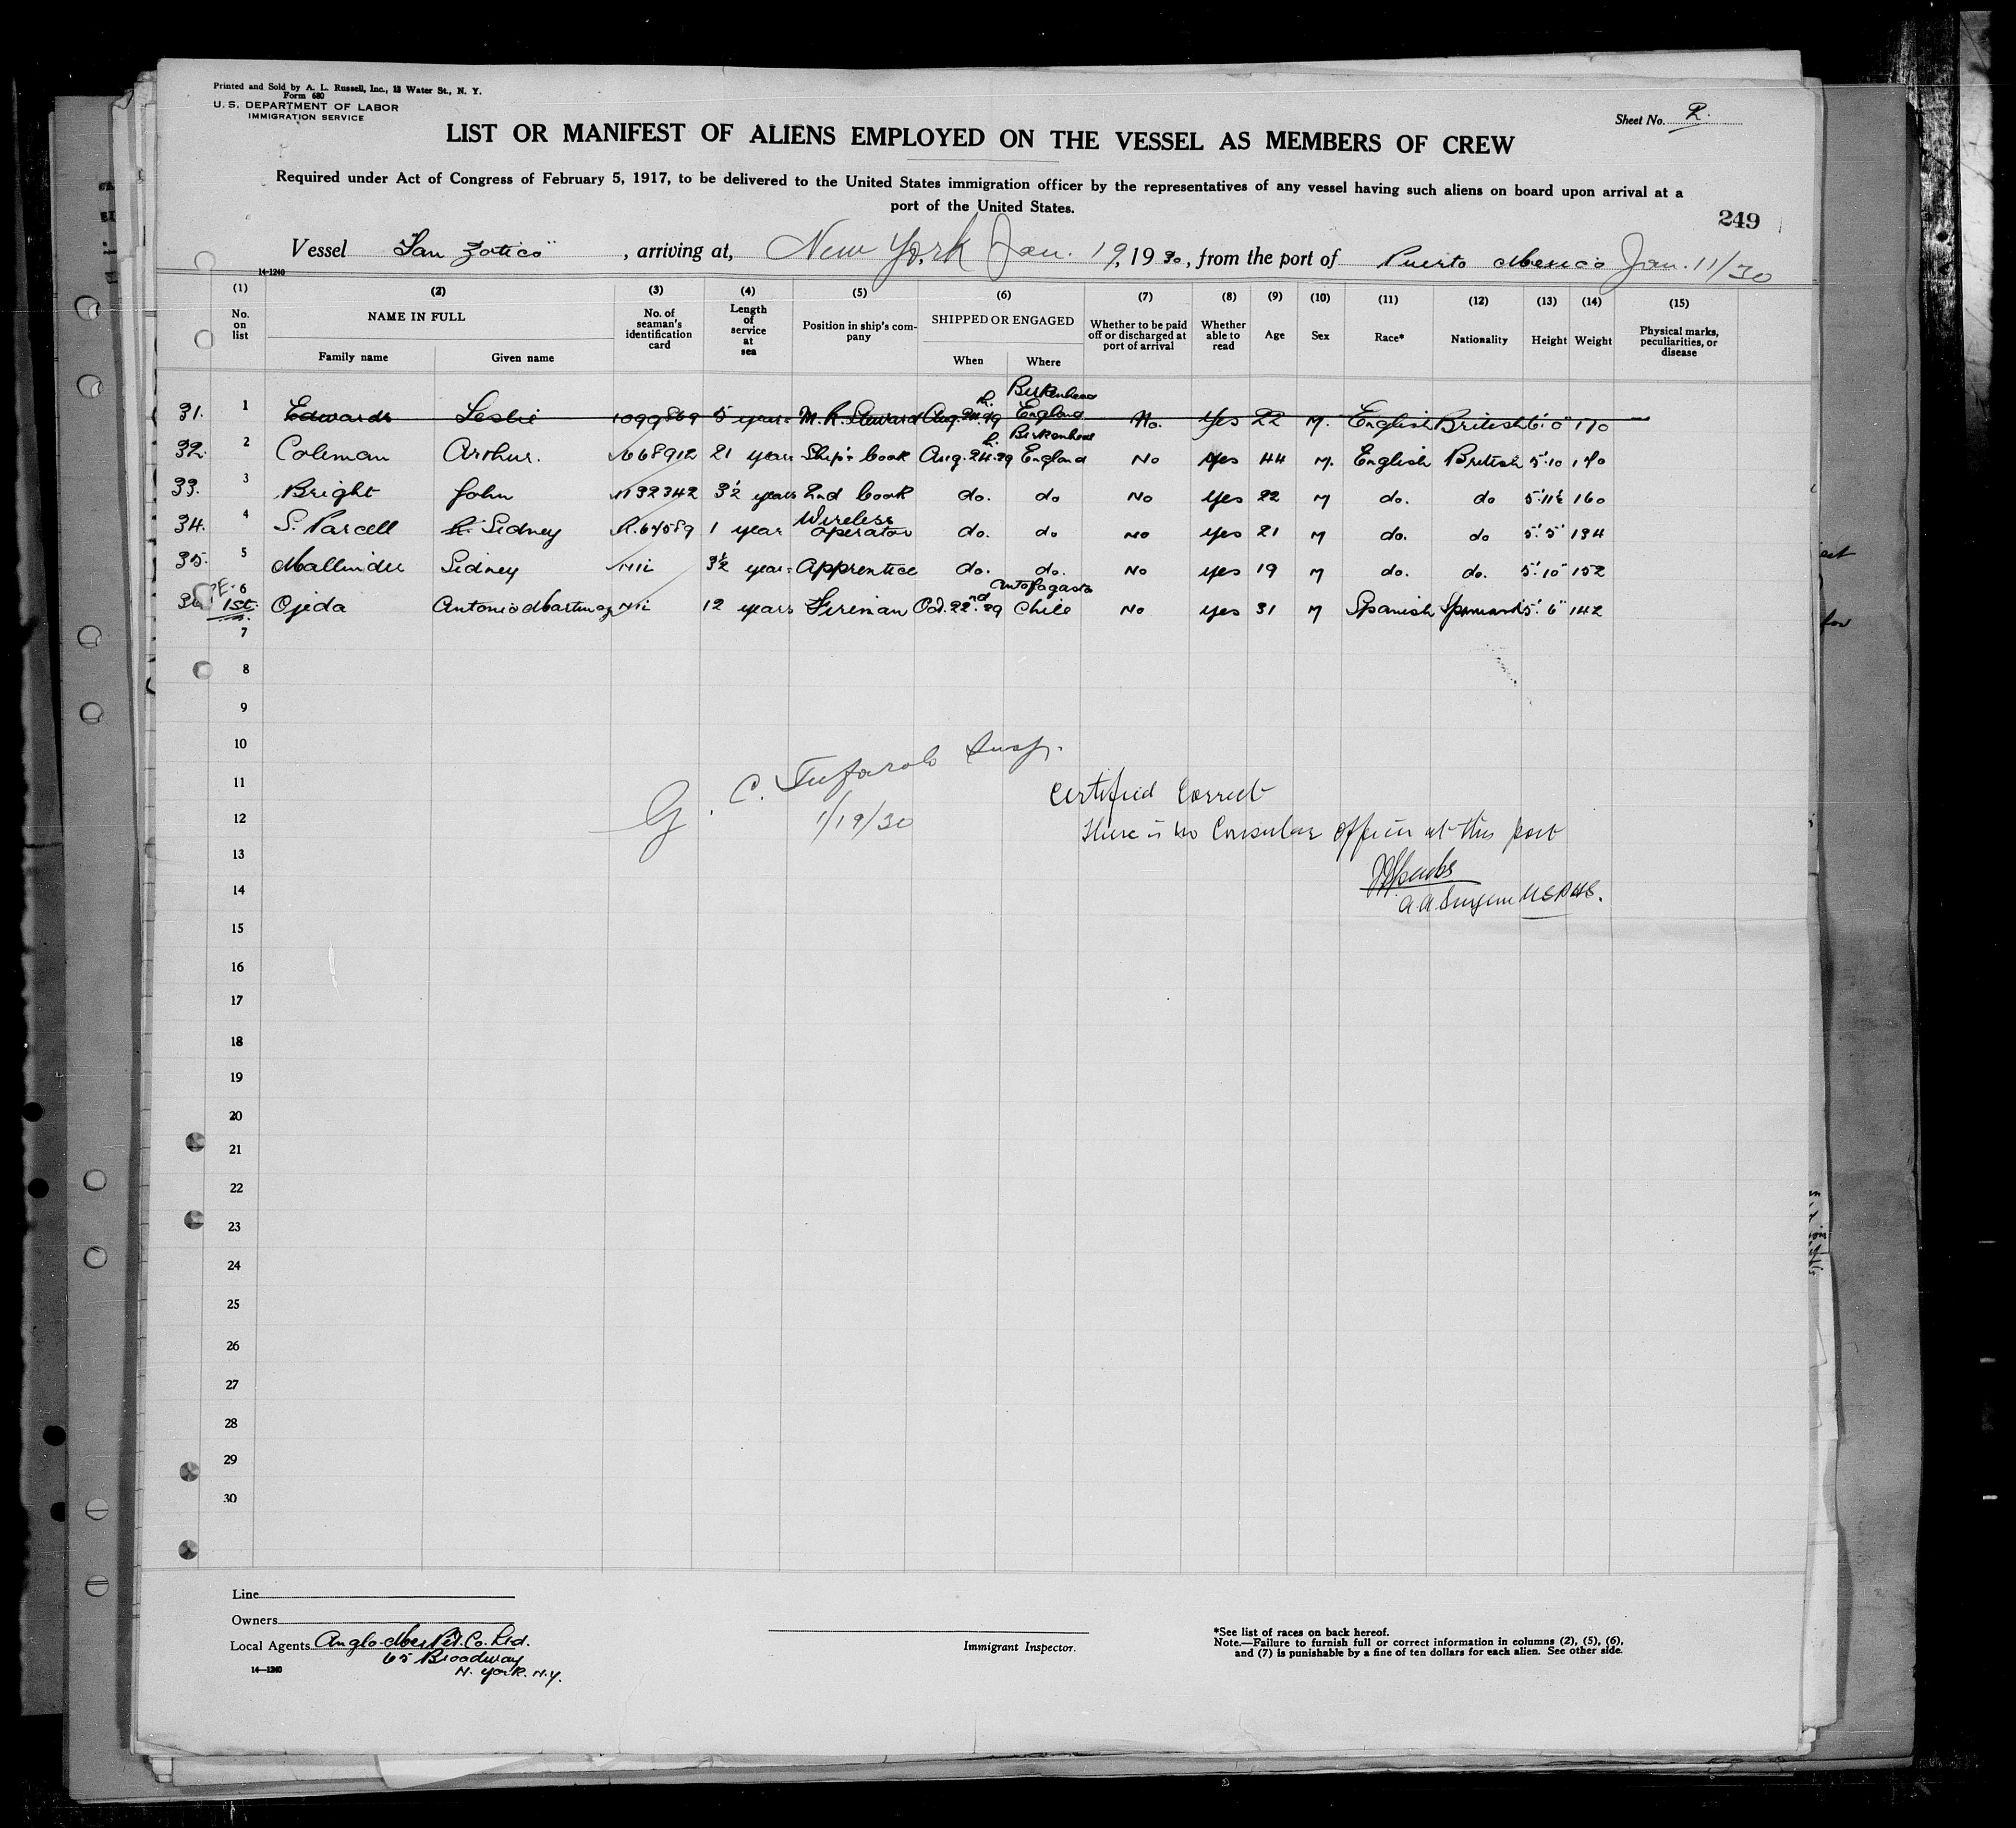 Printed and Sold by A. L. Russell, Inc., 12 Water St., N. Y.
Form 680
U. S. DEPARTMENT OF LABOR
IMMIGRATION SERVICE
Sheet No. 2.
LIST OR MANIFEST OF ALIENS EMPLOYED ON THE VESSEL AS MEMBERS OF CREW
Required under Act of Congress of February 5, 1917, to be delivered to the United States immigration officer by the representatives of any vessel having such aliens on board upon arrival at a
port of the United States.
249
Vessel "San Zotico", arriving at, New York Jan. 19, 1930, from the port of Puerto Mexico Jan. 11/30
14-1240
(1) (2) (3) (4) (5) (6) (7) (8) (9) (10) (11) (12) (13) (14) (15)
No. on list NAME IN FULL Family name Given name No. of seaman's identification card Length of service at sea Position in ship's company SHIPPED OR ENGAGED When Where Whether to be paid off or discharged at port of arrival Whether able to read Age Sex Race* Nationality Height Weight Physical marks, peculiarities, or disease
31. 1 Edwards Leslie 1099869 5 years M. R. Steward Aug. 24.29 Birkenhead England No. Yes 22 M. English British 6'.0" 170
32. 2 Coleman Arthur. 668912 21 years Ship's Cook Aug. 24.29 Birkenhead England No Yes 44 M. English British 5'.10 170
33. 3 Bright John 1132342 3½ years 2nd Cook do. do No Yes 22 M do. do 5'.11½ 160
34. 4 S. Parcell Sidney R.64589 1 year Wireless Operator do. do No Yes 21 M do. do 5'.5" 134
35. 5 Mallinder Sidney Nil 3½ years Apprentice do. do. No Yes 19 M do. do. 5'.10" 152
36 1st. 6 Ojeda Antonio Martinez Nil 12 years Fireman Oct. 22nd.29 Antofagasta Chile No Yes 31 M Spanish Spaniard 5'.6" 142
7
8
9
10
11
12
13
14
15
16
17
18
19
20
21
22
23
24
25
26
27
28
29
30
G. C. Tufarolo Insp.
1/19/30
Certified Correct
There is no Consular officer at this port
A.A. Surgeon U.S.P.H.S.
Line
Owners
Local Agents Anglo-Mex Pet. Co. Ltd.
65 Broadway
N. York. N.Y.
14—1240
Immigrant Inspector.
*See list of races on back hereof.
Note.—Failure to furnish full or correct information in columns (2), (5), (6),
and (7) is punishable by a fine of ten dollars for each alien. See other side.